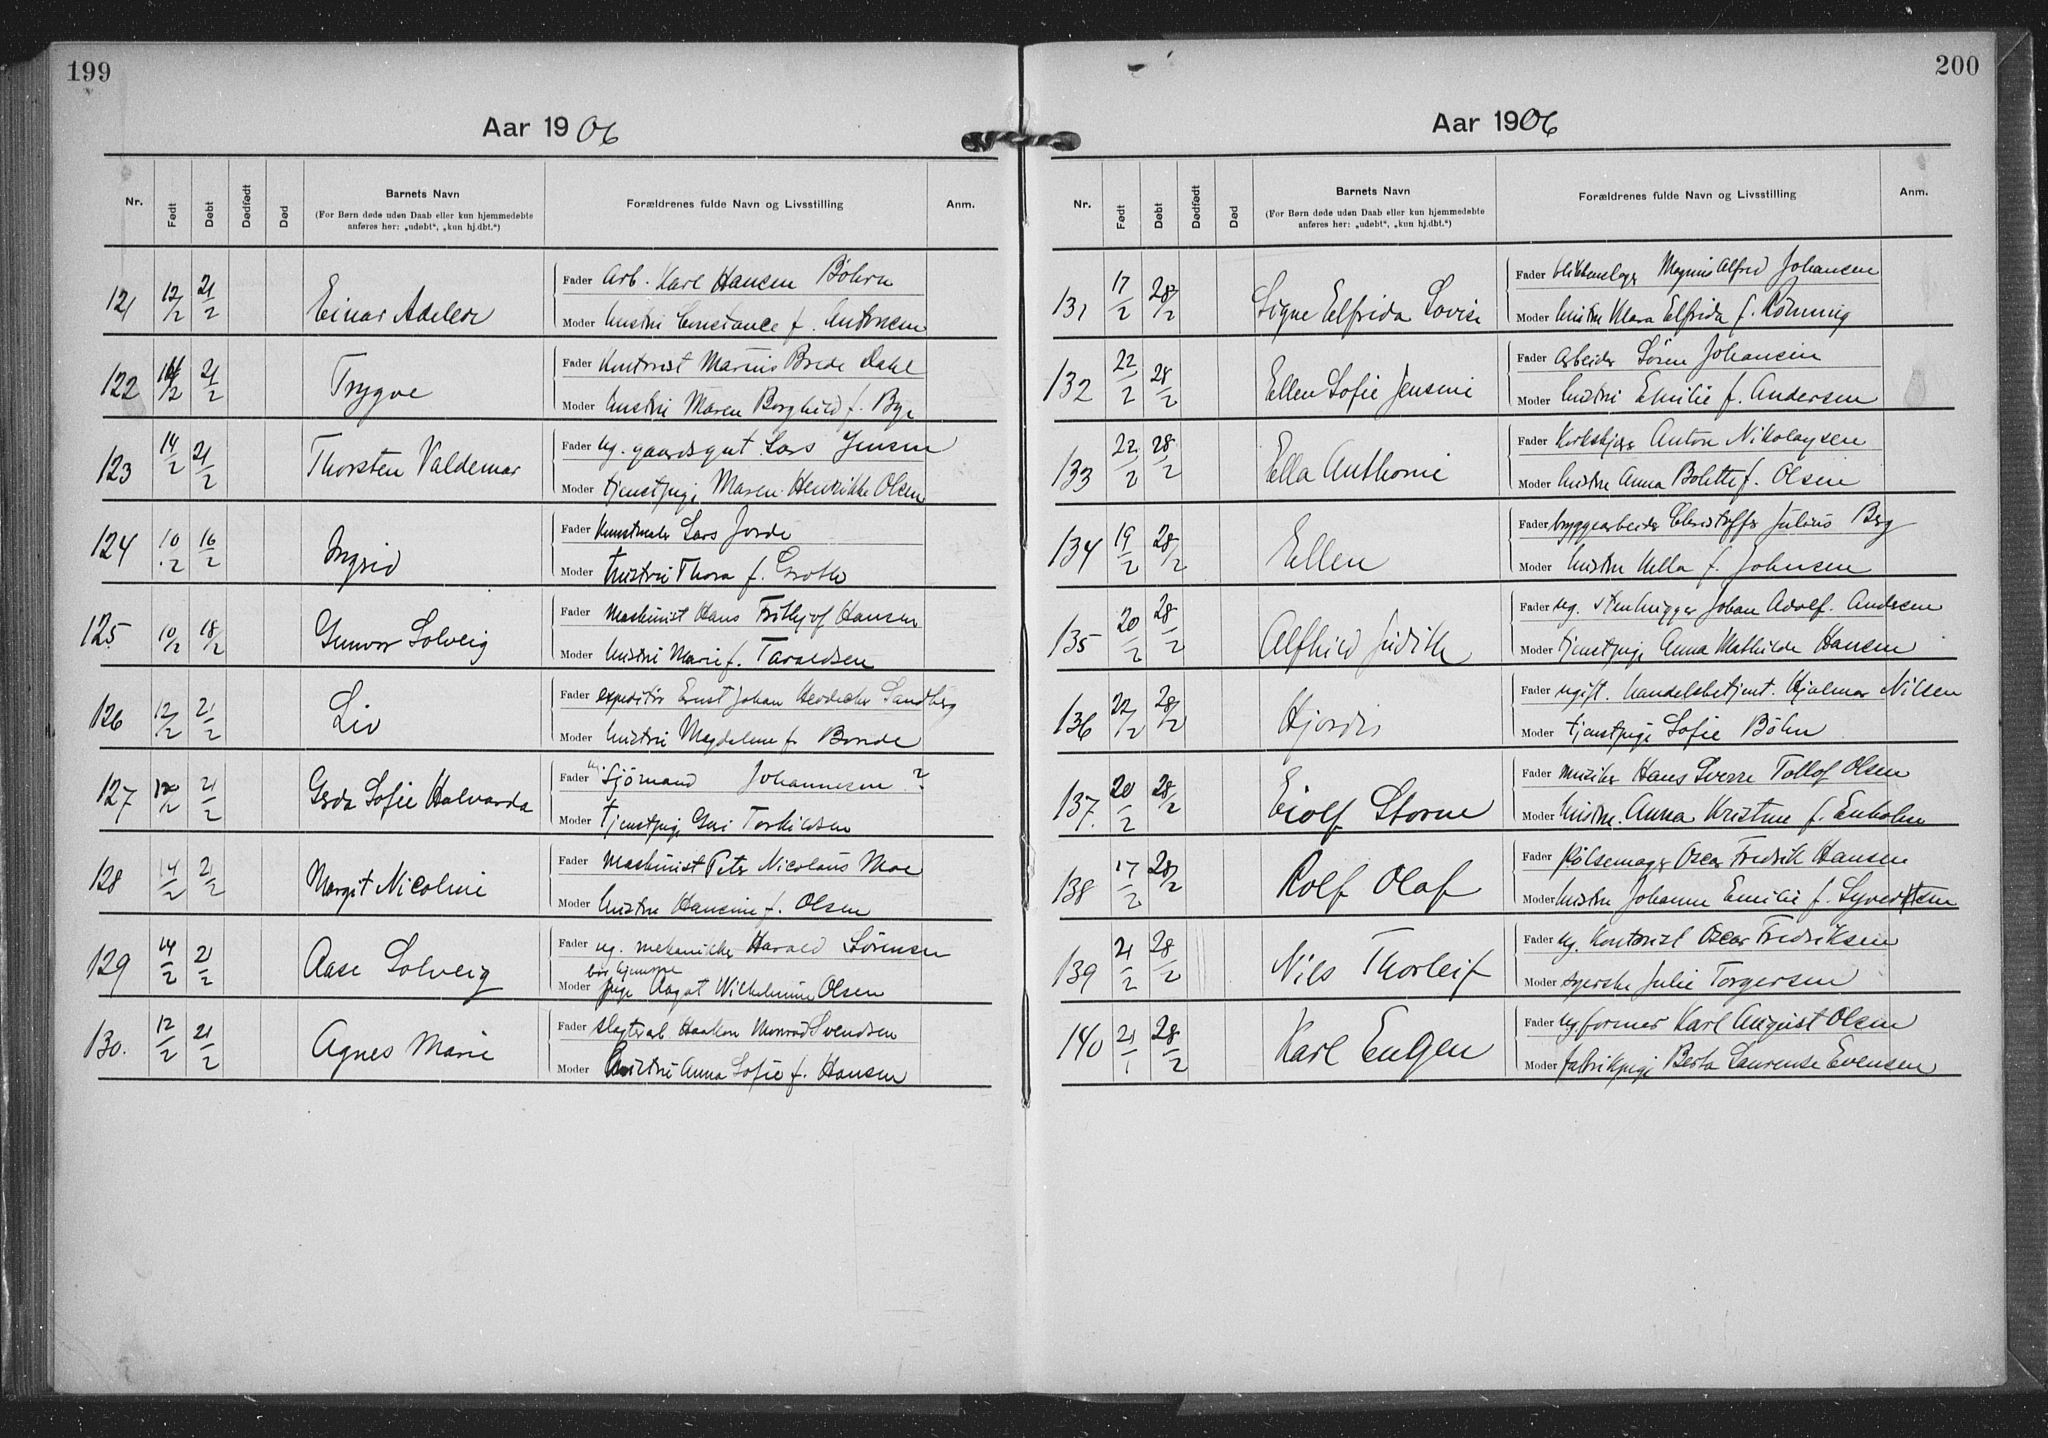 199
Aar 1906
Nr.
Født
Døbt
Dødfødt
Død
Barnets Navn
(For Børn døde uden Daab eller kun hjemmedøbte
anføres her: „udøbt“, „kun hj.dbt.“)
Forældrenes fulde Navn og Livsstilling
Anm.
121 12/2 21/2 Einar Adeler
Fader Arb. Karl Hansen Böhrn
Moder hustru Constance f. Antonsen
122 /2 21/2 Trygve
Fader Kontorist Marius Brede Dahl
Moder hustru Maren Borghild f. Bye
123 14/2 21/2 Thorsten Valdemar
Fader ug. gaardsgut Lars Jensen
Moder tjenestpige Maren Henrikke Olsen
124 10/2 16/2 Ingrid
Fader Kunstmaler Lars Jorde
Moder hustru Thora f. Groth
125 10/2 18/2 Gunvor Solveig
Fader Maskinist Hans Frithjof Hansen
Moder hustru Marie f. Taraldsen
126 12/2 21/2 Liv
Fader expeditör Ernst Johan Sandberg
Moder hustru Magdalene f.
127 /2 21/2 Gerda Sofie Halvarda
Fader Sjömand Johannesen ?
Moder tjenestpige Guri Torkildsen
128 14/2 21/2 Margit Nicoline
Fader Maskinist Peter Nicolaus Moe
Moder hustru Hansine f. Olsen
129 14/2 21/2 Aase Solveig
Fader ug. mekaniker Harald Sörensen
Moder pige Aagot Wilhelmine Olsen
130. 12/2 21/2 Agnes Marie
Fader Haakon Monrad Svendsen
Moder hustru Anna Sofie f. Hansen
200
Aar 1906
Nr.
Født
Døbt
Dødfødt
Død
Barnets Navn
(For Børn døde uden Daab eller kun hjemmedøbte
anføres her: „udøbt“, „kun hj.dbt.“)
Forældrenes fulde Navn og Livsstilling
Anm.
131 17/2 28/2 Signe Elfrida Lovise
Fader blikkenslager Magnus Alfred Johansen
Moder hustru Klara Elfrida f. Rönning
132 22/2 28/2 Ellen Sofie Jensine
Fader Arbeider Sören Johansen
Moder hustru Emilie f. Andersen
133 22/2 28/2 Ella Anthonie
Fader Anton Nikolaysen
Moder hustru Anna Bolette f. Olsen
134 19/2 28/2 Ellen
Fader bryggearbeider Christoffer Julius Berg
Moder hustru f. Johnsen
135 20/2 28/2 Alfhild Judith
Fader ug. stenhugger Johan Adolf Andersen
Moder tjenestpige Anna Mathilde Hansen
136 22/2 28/2 Hjördis
Fader ugift. handelsbetjent. Hjalmar Nilsen
Moder tjenestpige Sofie Böhn
137. 20/2 28/2 Eiolf Storm
Fader Musiker Hans Sverre Tollof Olsen
Moder hustru Anna Kristine f.
138 17/2 28/2 Rolf Olaf
Fader Pölsemager Oscar Fredrik Hansen
Moder hustru Johanne Emilie f. Syvertsen
139 21/2 28/2 Nils Thorleif
Fader ug. Kontorist Oscar Fredriksen
Moder syerske Julie Torgersen
140 21/1 28/2 Karl Eugen
Fader ug former Karl August Olsen
Moder fabrikpige Berta Laurense Evensen